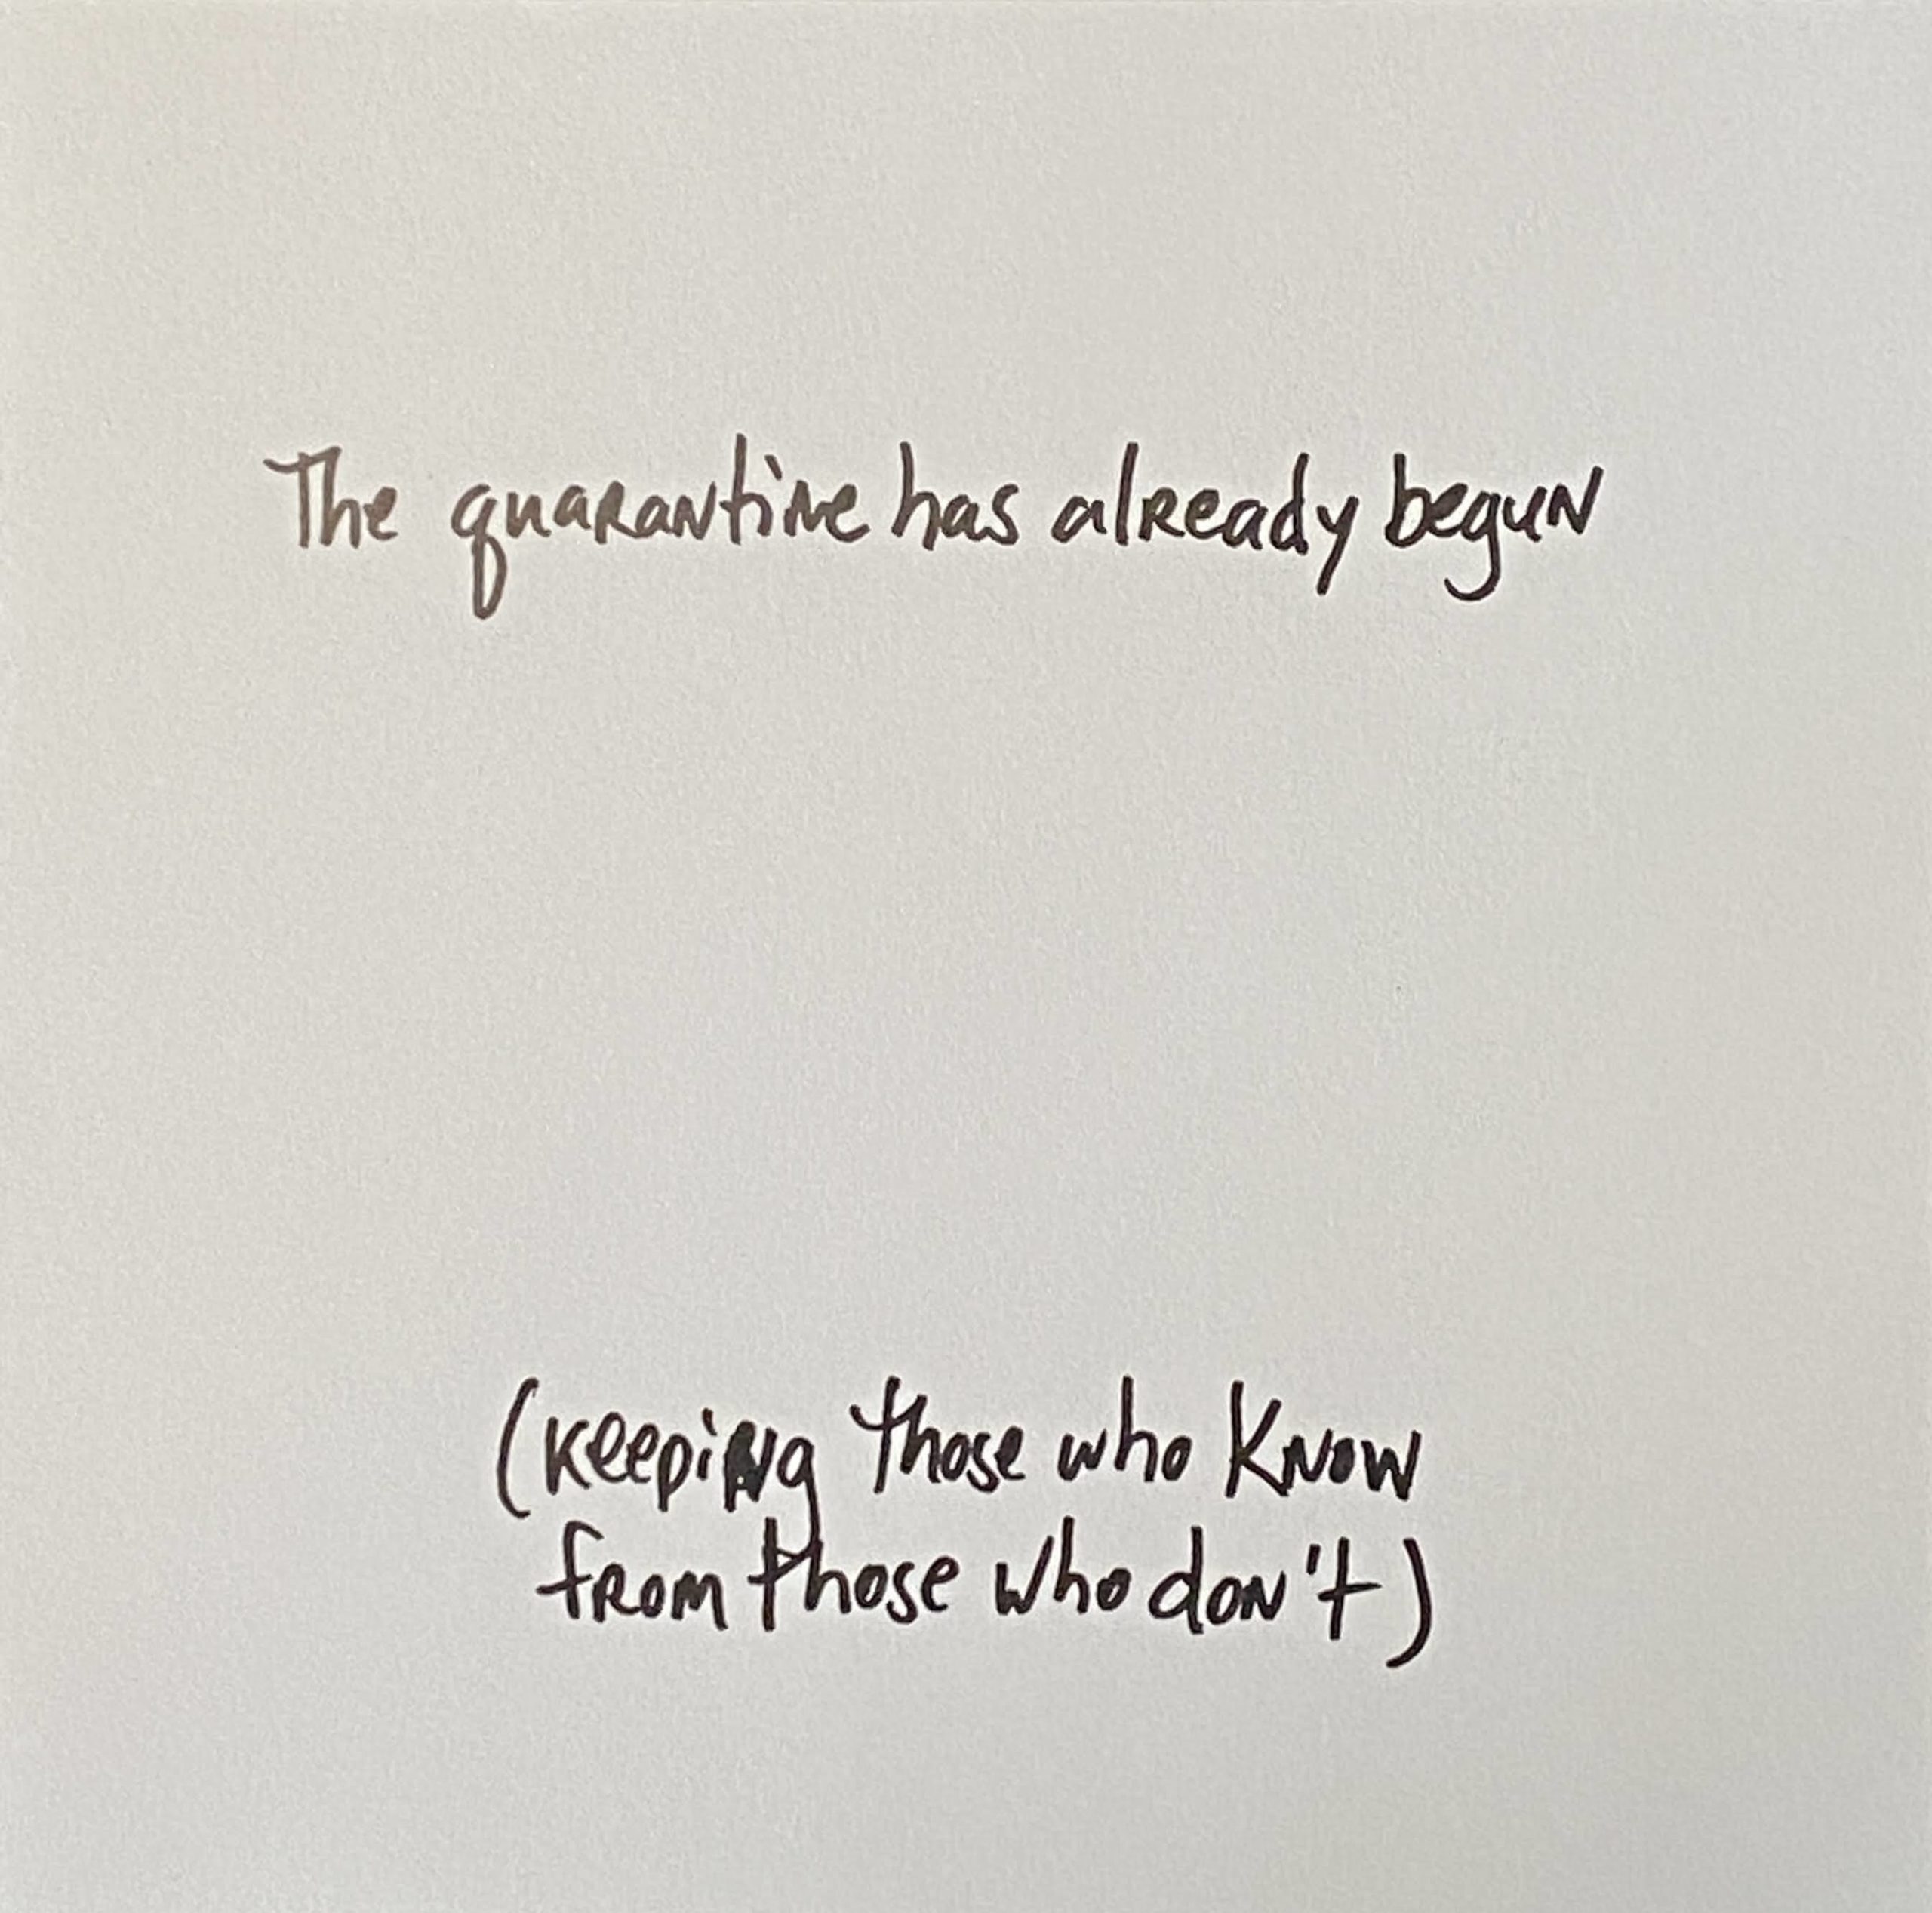 The quarantine has already begun
(keeping those who know
from those who don't)